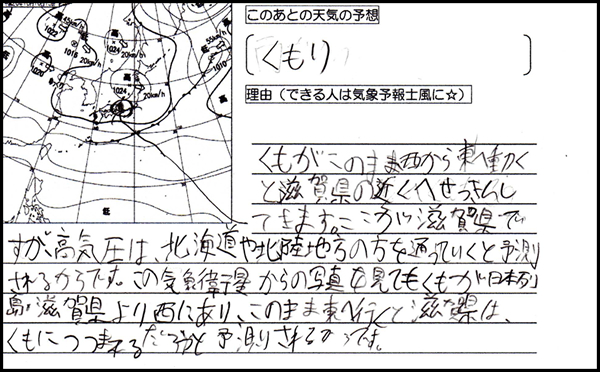 このあとの天気の予想
くもり
理由（できる人は気象予報士風に☆）
くもがこのまま西から東へ動く
と滋賀県の近くへせっきんし
てきます。ここが滋賀県で
すが、高気圧は、北海道や北陸地方の方を通っていくと予測
されるからです。この気象衛星からの写真を見てもくもが日本列
島滋賀県より西にあり、このまま東へ行くと滋賀県は、
くもにつつまれるだろうと予測されるからです。
高
45km/h
1022
1018
20km/h
高
1024
20km/h
高
1020
高
1024
20km/h
低
55km/h
1010
高
低